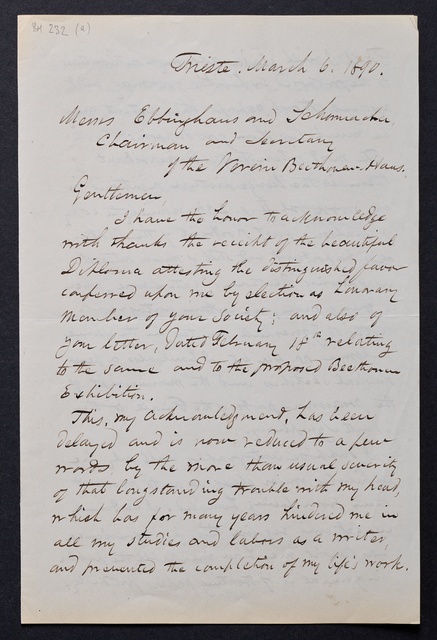 BH 232 (a)
Trieste. March 6. 1890.
Messrs Ebbinghaus and Schumacher
Chairman and Secretary
of the Verein Beethoven-Haus.
Gentlemen,
I have the honor to acknowledge
with thanks the receipt of the beautiful
Diploma attesting the distinguished favor
conferred upon me by election as honorary
Member of your Society; and also of
your letter, dated February 18th relating
to the same and to the proposed Beethoven
Exhibition.
This, my acknowledgment, has been
delayed and is now reduced to a few
words by the more than usual severity
of that longstanding trouble with my head,
which has for many years hindered me in
all my studies and labors as a writer,
and prevented the completion of my life's work.